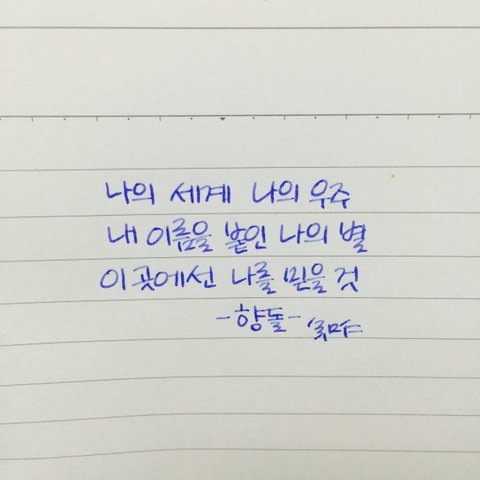 나의 세계 나의 우주
내 이름을 붙인 나의 별
이 곳에선 나를 믿을 것
-향돌-